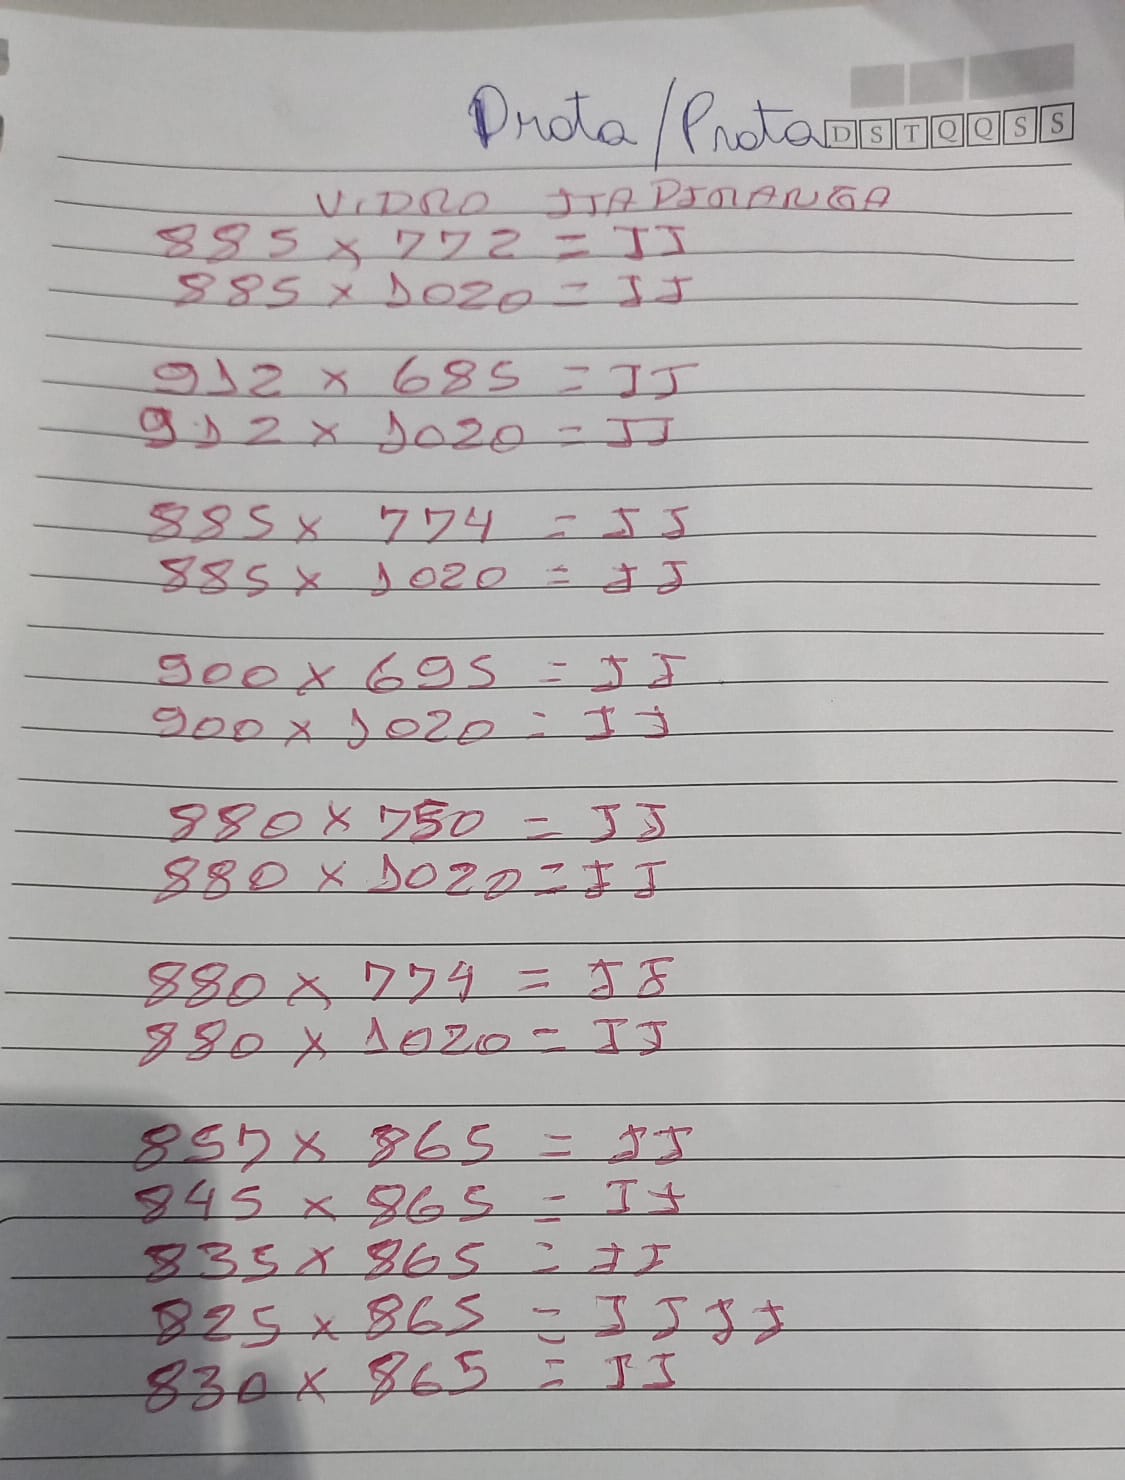 Prata/Prata
D S T Q Q S S
VIDRO ITAPIRANGA
885 x 772 = II
885 x 1020 = II
912 x 685 = II
912 x 1020 = II
885 x 774 = II
885 x 1020 = II
900 x 695 = II
900 x 1020 = II
880 x 750 = II
880 x 1020 = II
880 x 774 = II
880 x 1020 = II
857 x 865 = II
845 x 865 = II
835 x 865 = II
825 x 865 = IIII
830 x 865 = II